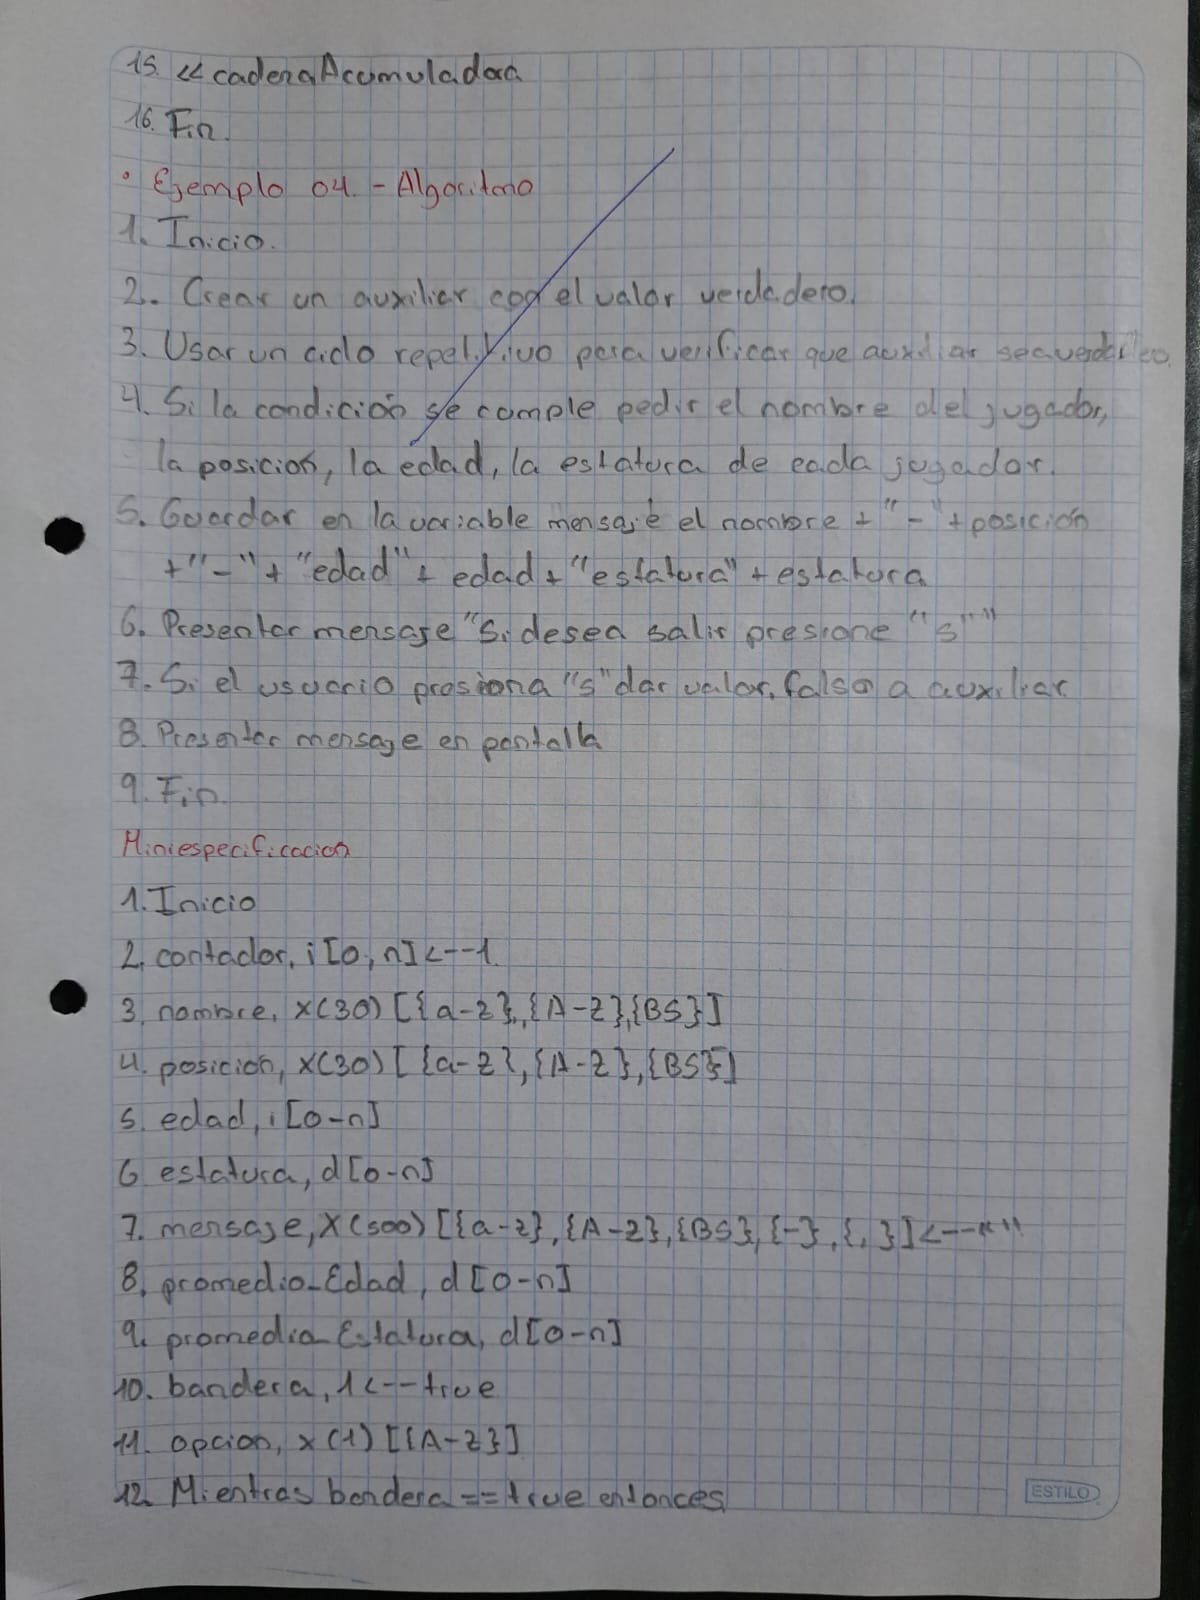 15. << cadenaAcumuladora
16. Fin.
• Ejemplo 04. - Algoritmo
1. Inicio.
2. Crear un auxiliar con el valor verdadero.
3. Usar un ciclo repetitivo para verificar que auxiliar sea verdadero.
4. Si la condición se comple pedir el nombre del jugador,
la posicion, la edad, la estatura de cada jugador.
5. Guardar en la variable mensaje el nombre + "-" + posición
+ "-" + "edad" + edad + "estatura" + estatura
6. Presentar mensaje "Si desea salir presione "s""
7. Si el usuario presiona "s" dar valor, falso a auxiliar
8. Presentar mensaje en pantalla
9. Fin.
Miniespecificacion
1. Inicio
2. contador, i [0, n] <--1.
3. nombre, X(30) [{a-z},{A-Z},{BS}]
4. posicion, X(30) [{a-z},{A-Z},{BS}]
5. edad, i [0-n]
6 estatura, d[0-n]
7. mensaje, X(500) [{a-z},{A-Z},{BS},{-},{,}]<--""
8. promedio_Edad, d[0-n]
9. promedio_Estatura, d[0-n]
10. bandera, 1<--true
11. opcion, x(1) [{A-Z}]
12. Mientras bandera == true entonces
ESTILO